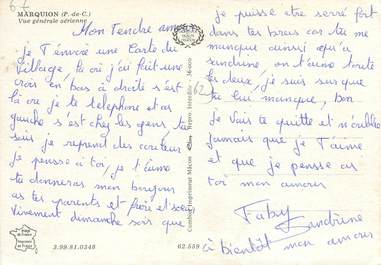 67
MARQUION (P.-de-C.)
Vue générale aérienne
Mon Tendre amour
je T'envoie une Carte du
village, là où j'ai fait une
croix en bas à droite s'est
là ou je te téléphone et à
gauche s'est chez les gens, tu
sais je reprend des couleur
je pensse a toi, je t'aime
tu donneras mon bonjour
as tes parents et frère et soeur
Vivement dimanche soir que
3.99.81.0348
62.559
Combier Imprimeur Mâcon
Repro. Interdite
36-000
62
je puisse etre serré fort
dans tes bras car tu me
manque aussi qu'a
sandrine on t'aime toute
les deux, je suis sur que
tu lui manque, bon
je Vais te quitté et n'oublie
jamais que je T'aime
et que je pensse as
toi mon amour
Faby
Sandrine
à bientôt mon amour